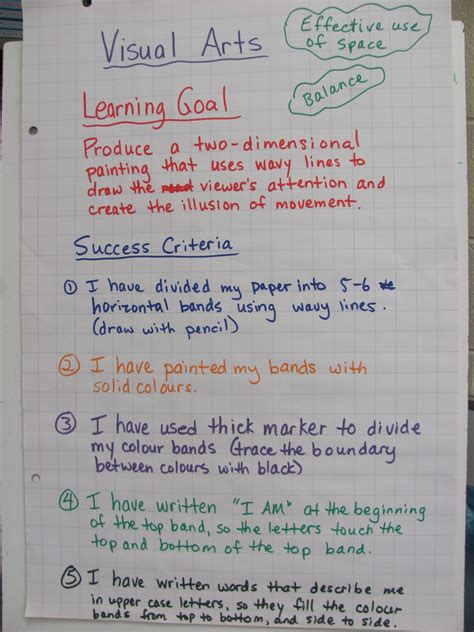 Visual Arts
Effective use
of Space
Balance
Learning Goal
Produce a two-dimensional
painting that uses wavy lines to
draw the viewer's attention and
create the illusion of movement.
Success Criteria
① I have divided my paper into 5-6
horizontal bands using wavy lines.
(draw with pencil)
② I have painted my bands with
solid colours.
③ I have used thick marker to divide
my colour bands (trace the boundary
between colours with black)
④ I have written "I AM" at the beginning
of the top band, so the letters touch the
top and bottom of the top band.
⑤ I have written words that describe me
in upper case letters, so they fill the colour
bands from top to bottom, and side to side.